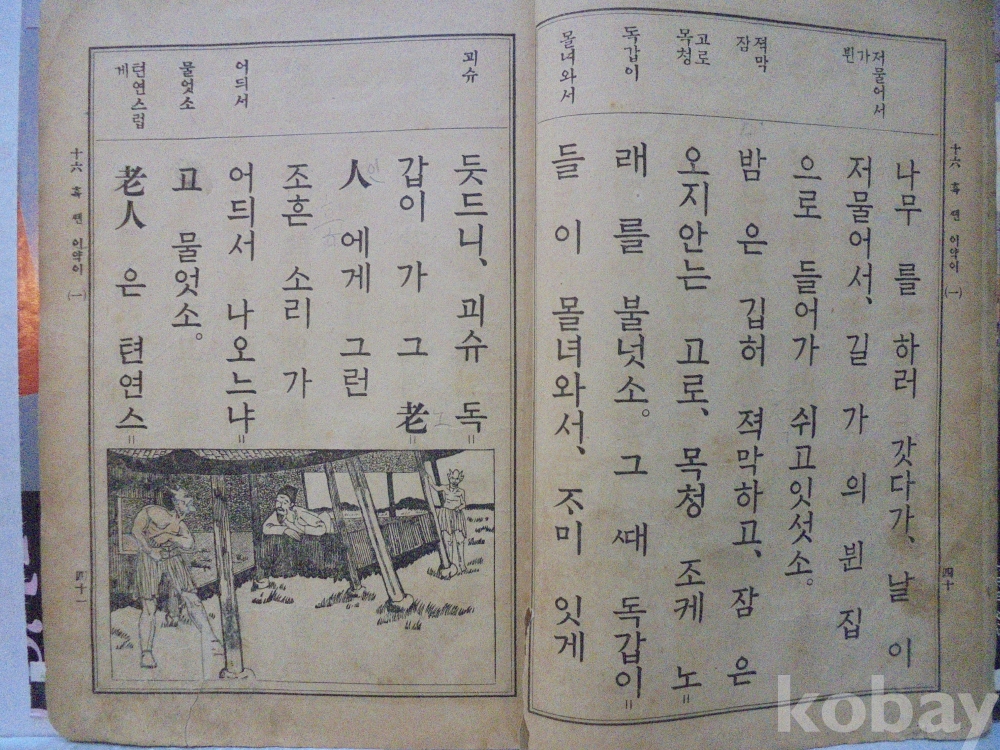 저물어서
가
뷘
져막
잠
고로
목청
독갑이
몰녀와서
十六 혹 쎈 이약이 (一)
나무 를 하러 갓다가、 날 이
저물어서、 길 가 의 뷘 집
으로 들어가 쉬고잇섯소。
밤 은 깁허 젹막하고、 잠 은
오지안는 고로、 목청 조케 노=
래 를 불넛소。 그 ᄯᅢ 독갑이=
들 이 몰녀와서、 ᄌᆞ미 잇게
四十
괴슈
어듸서
물엇소
텬연스럽
게
듯드니、 괴슈 독=
갑이 가 그 老
人 에게 그런
조흔 소리 가
어듸서 나오느냐=
고 물엇소。
老人 은 텬연스=
十六 혹 쎈 이약이 (一)
四十一
kobay